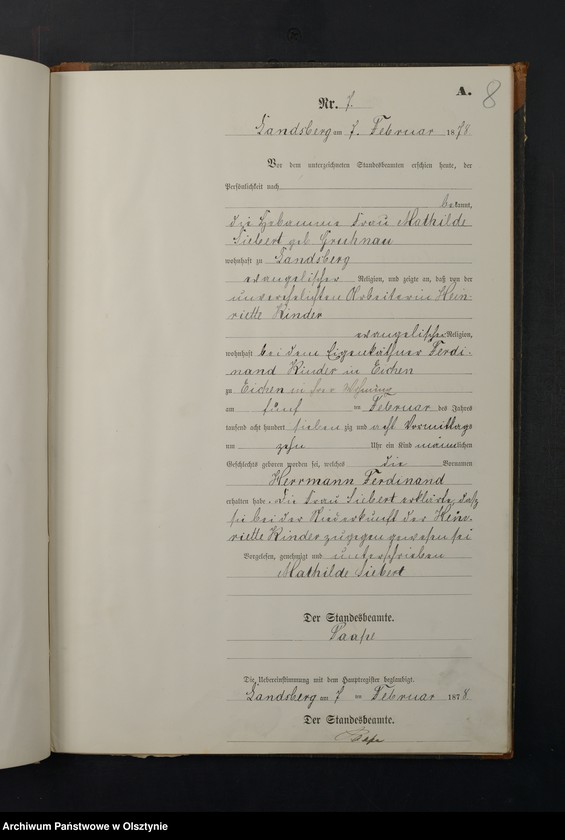 A. 8
Nr. 7.
Landsberg am 7. Februar 1878
Vor dem unterzeichneten Standesbeamten erschien heute, der
Persönlichkeit nach
bekannt,
die Hebamme Frau Mathilde
Siebert geb. Gruhnau
wohnhaft zu Landsberg
evangelischer Religion, und zeigte an, daß von der
unverehelichten Arbeiterin Hein-
riette Kinder
evangelischer Religion,
wohnhaft bei dem Eigenkäthner Ferdi-
nand Kinder in Eichen
zu Eichen in ihrer Wohnung
am fünf ten Februar des Jahres
tausend acht hundert sieben zig und acht Vormittags
um zehn Uhr ein Kind männlichen
Geschlechts geboren worden sei, welches die Vornamen
Herrmann Ferdinand
erhalten habe. Die Frau Siebert erklärte, daß
sie bei der Niederkunft der Hein-
riette Kinder zugegen gewesen sei
Vorgelesen, genehmigt und unterschrieben
Mathilde Siebert
Der Standesbeamte.
Die Uebereinstimmung mit dem Hauptregister beglaubigt.
Landsberg am 7 ten Februar 1878.
Der Standesbeamte.
Archiwum Państwowe w Olsztynie